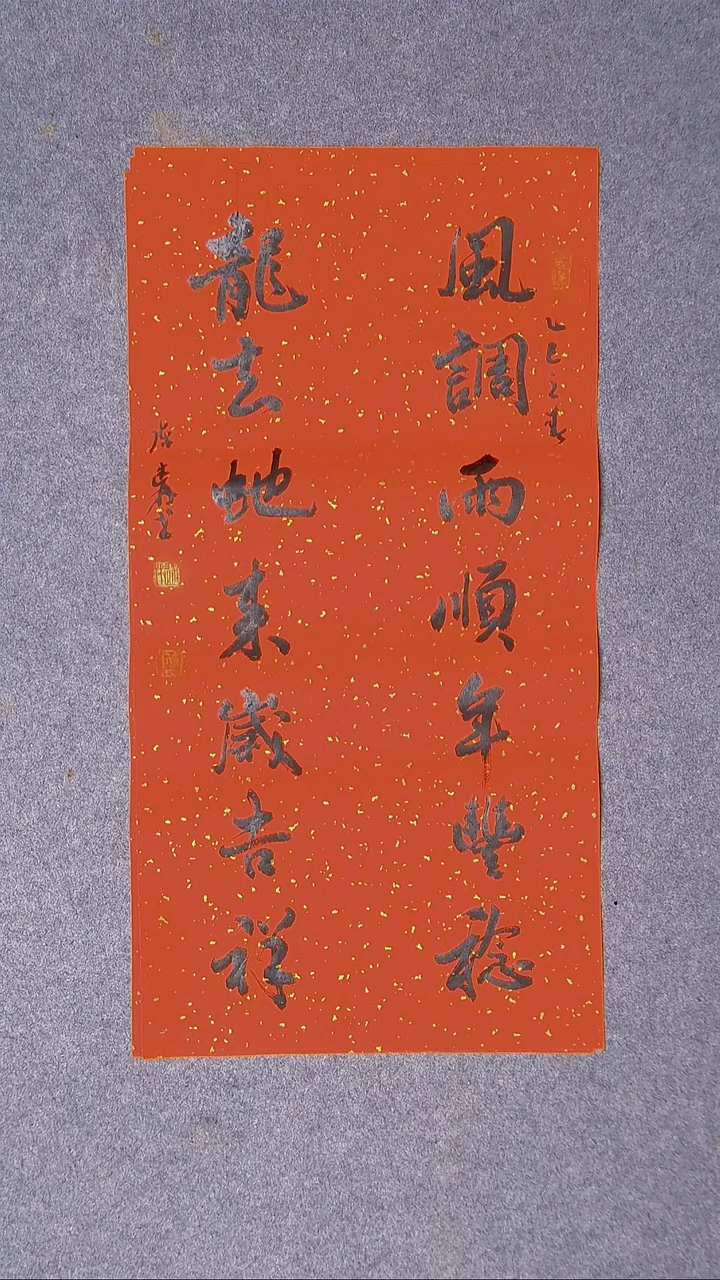 乙巳之春
風調雨順年豐稔
龍去虵來歲吉祥